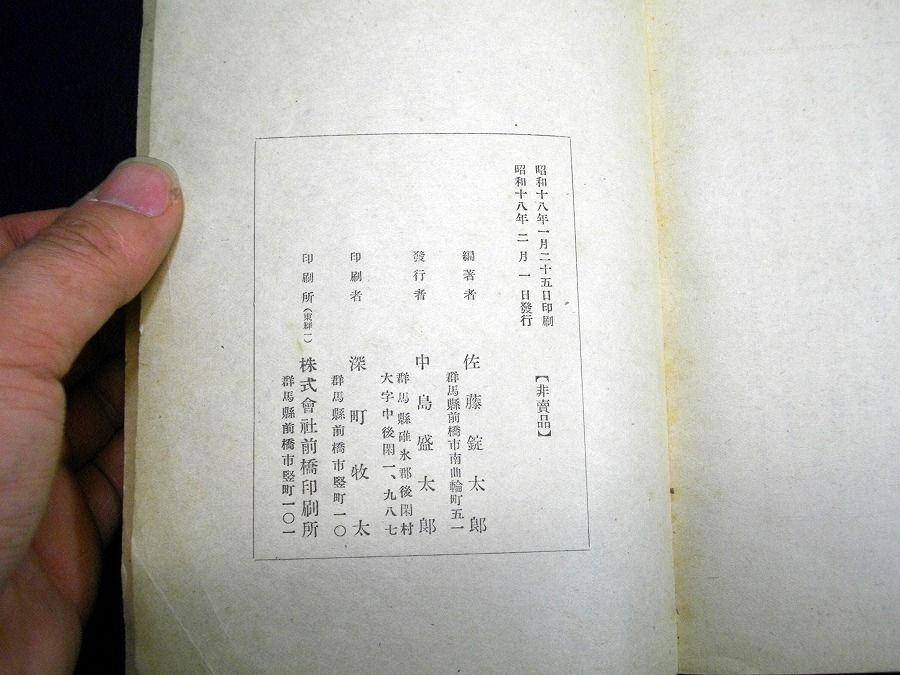 昭和十八年一月二十五日印刷
昭和十八年二月一日發行
【非賣品】
編著者 佐藤錠太郎
群馬縣前橋市南曲輪町五一
發行者 中島盛太郎
群馬縣碓氷郡後閑村
大字中後閑一、九八七
印刷者 深町牧太
群馬縣前橋市竪町一〇
印刷所(東群一) 株式會社前橋印刷所
群馬縣前橋市竪町一〇一